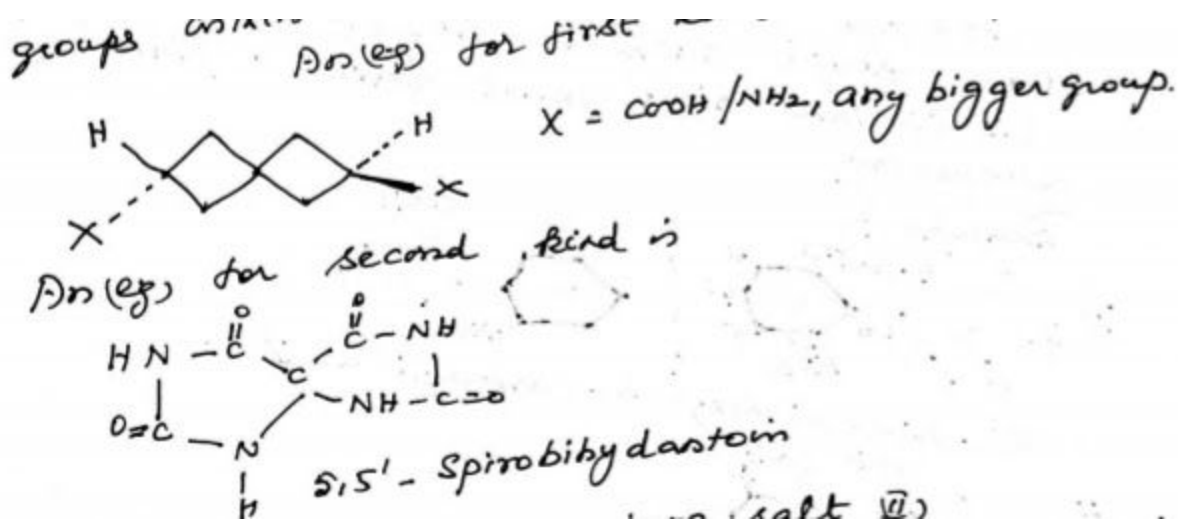 groups
An (eg) for first
X = COOH/NH2, any bigger group.
H
H
X
X
An (eg) for second kind is
O
O
HN - C
C - NH
C
NH - C=O
O=C
N
H
5,5' - Spirobihydantoin
salt II)